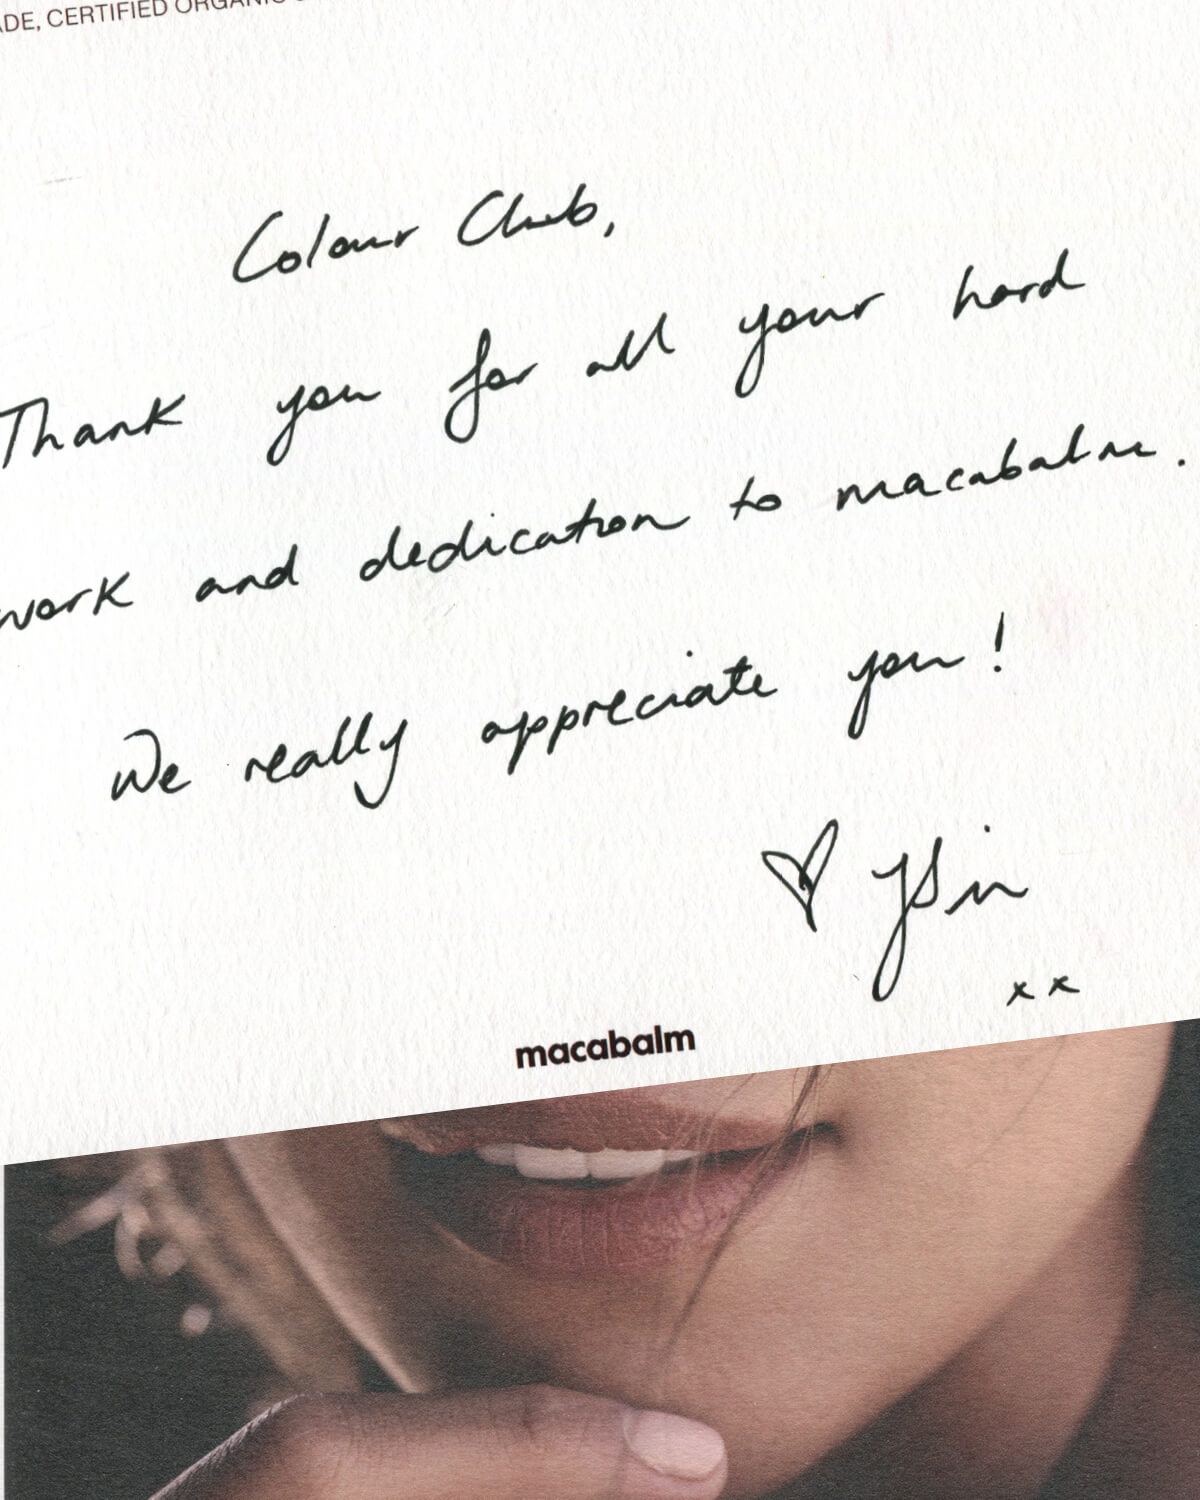 ADE, CERTIFIED ORGANIC
Colour Club,
Thank you for all your hard
work and dedication to macabalm.
We really appreciate you!
xx
macabalm